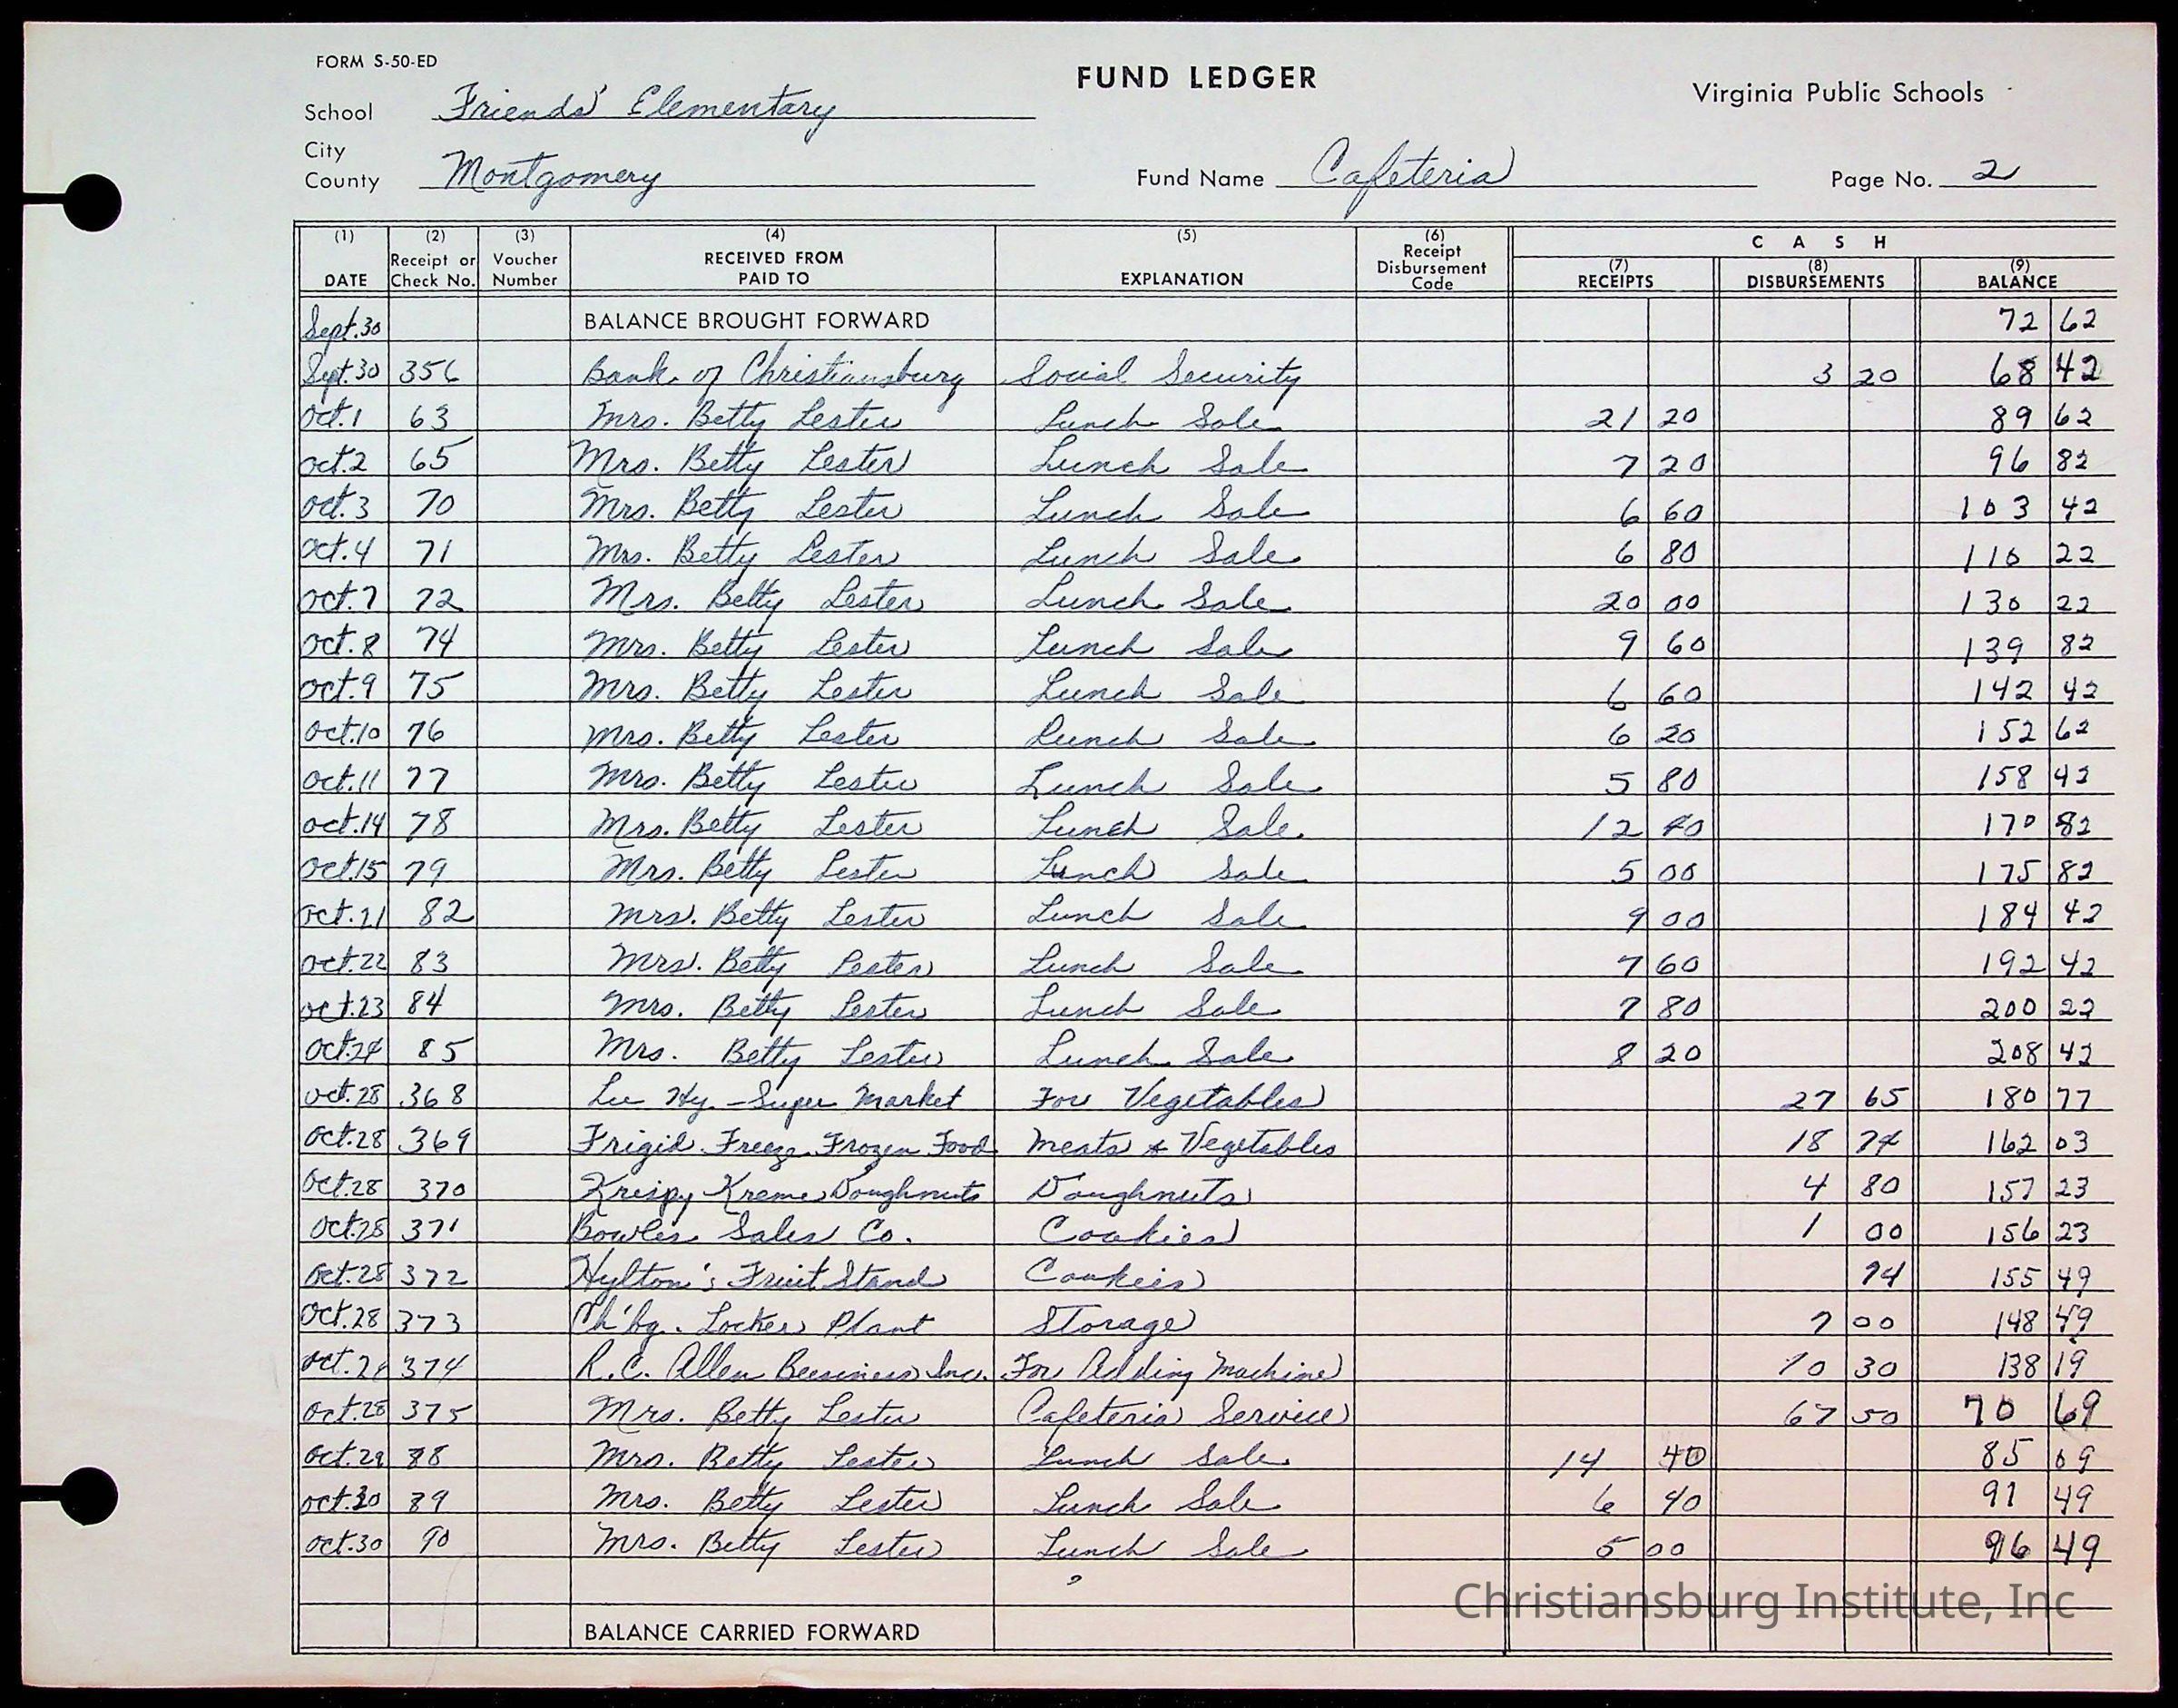 FORM S-50-ED
FUND LEDGER
Virginia Public Schools
School Friends' Elementary
City
County Montgomery
Fund Name Cafeteria
Page No. 2
(1) DATE (2) Receipt or Check No. (3) Voucher Number (4) RECEIVED FROM PAID TO (5) EXPLANATION (6) Receipt Disbursement Code CASH (7) RECEIPTS (8) DISBURSEMENTS (9) BALANCE
Sept. 30 BALANCE BROUGHT FORWARD 72 62
Sept. 30 356 Bank of Christiansburg Social Security 3 20 68 42
Oct. 1 63 Mrs. Betty Lester Lunch Sale 21 20 89 62
Oct. 2 65 Mrs. Betty Lester Lunch Sale 7 20 96 82
Oct. 3 70 Mrs. Betty Lester Lunch Sale 6 60 103 42
Oct. 4 71 Mrs. Betty Lester Lunch Sale 6 80 110 22
Oct. 7 72 Mrs. Betty Lester Lunch Sale 20 00 130 22
Oct. 8 74 Mrs. Betty Lester Lunch Sale 9 60 139 82
Oct. 9 75 Mrs. Betty Lester Lunch Sale 6 60 142 42
Oct. 10 76 Mrs. Betty Lester Lunch Sale 6 20 152 62
Oct. 11 77 Mrs. Betty Lester Lunch Sale 5 80 158 42
Oct. 14 78 Mrs. Betty Lester Lunch Sale 12 40 170 82
Oct. 15 79 Mrs. Betty Lester Lunch Sale 5 00 175 82
Oct. 21 82 Mrs. Betty Lester Lunch Sale 9 00 184 42
Oct. 22 83 Mrs. Betty Lester Lunch Sale 7 60 192 42
Oct. 23 84 Mrs. Betty Lester Lunch Sale 7 80 200 22
Oct. 24 85 Mrs. Betty Lester Lunch Sale 8 20 208 42
Oct. 28 368 Lee Hy - Super Market For Vegetables 27 65 180 77
Oct. 28 369 Frigid Freeze Frozen Food Meats & Vegetables 18 74 162 03
Oct. 28 370 Krispy Kreme Doughnuts Doughnuts 4 80 157 23
Oct. 28 371 Bowles Sales Co. Cookies 1 00 156 23
Oct. 28 372 Hylton's Fruit Stand Cookies 74 155 49
Oct. 28 373 Ch'bg. Locker Plant Storage 7 00 148 49
Oct. 28 374 R.C. Allen Beesiness Inc. For Adding Machine 10 30 138 19
Oct. 28 375 Mrs. Betty Lester Cafeteria Service 67 50 70 69
Oct. 29 88 Mrs. Betty Lester Lunch Sale 14 40 85 09
Oct. 30 89 Mrs. Betty Lester Lunch Sale 6 40 91 49
Oct. 30 90 Mrs. Betty Lester Lunch Sale 5 00 96 49
Christiansburg Institute, Inc
BALANCE CARRIED FORWARD